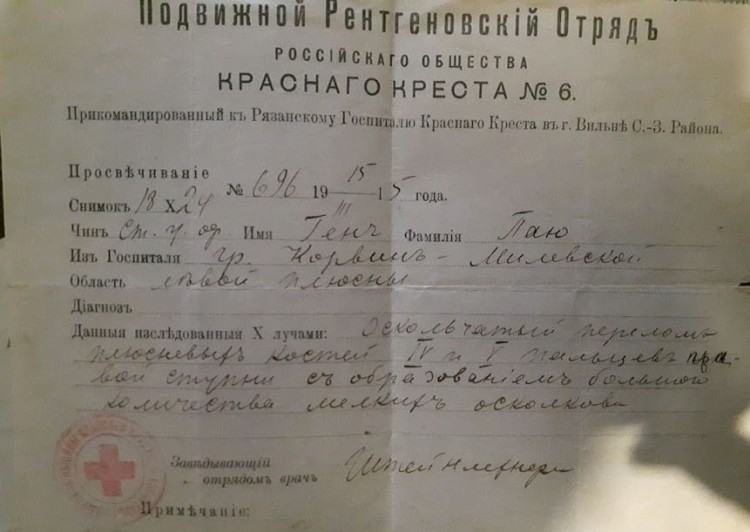 Подвижной Рентгеновскій Отрядъ
РОССІЙСКАГО ОБЩЕСТВА
КРАСНАГО КРЕСТА № 6.
Прикомандированный къ Рязанскому Госпиталю Краснаго Креста въ г. Вильнѣ С.-З. Района.
Просвѣчиваніе № 696 19 15/III 15 года.
Снимокъ 18 X 24
Чинъ Ст. у. ор Имя Генч Фамилія Паю
Изъ Госпиталя гр. Корвинъ-Милевской
Область лѣвой плюсны
Діагнозъ
Данныя изслѣдованныя X лучами: Оскольчатый переломъ
плюсневыхъ костей IV и V пальцевъ пра-
вой ступни съ образованіемъ большого
количества мелкихъ осколковъ
Завѣдывающій
отрядомъ врачъ
Примѣчаніе: